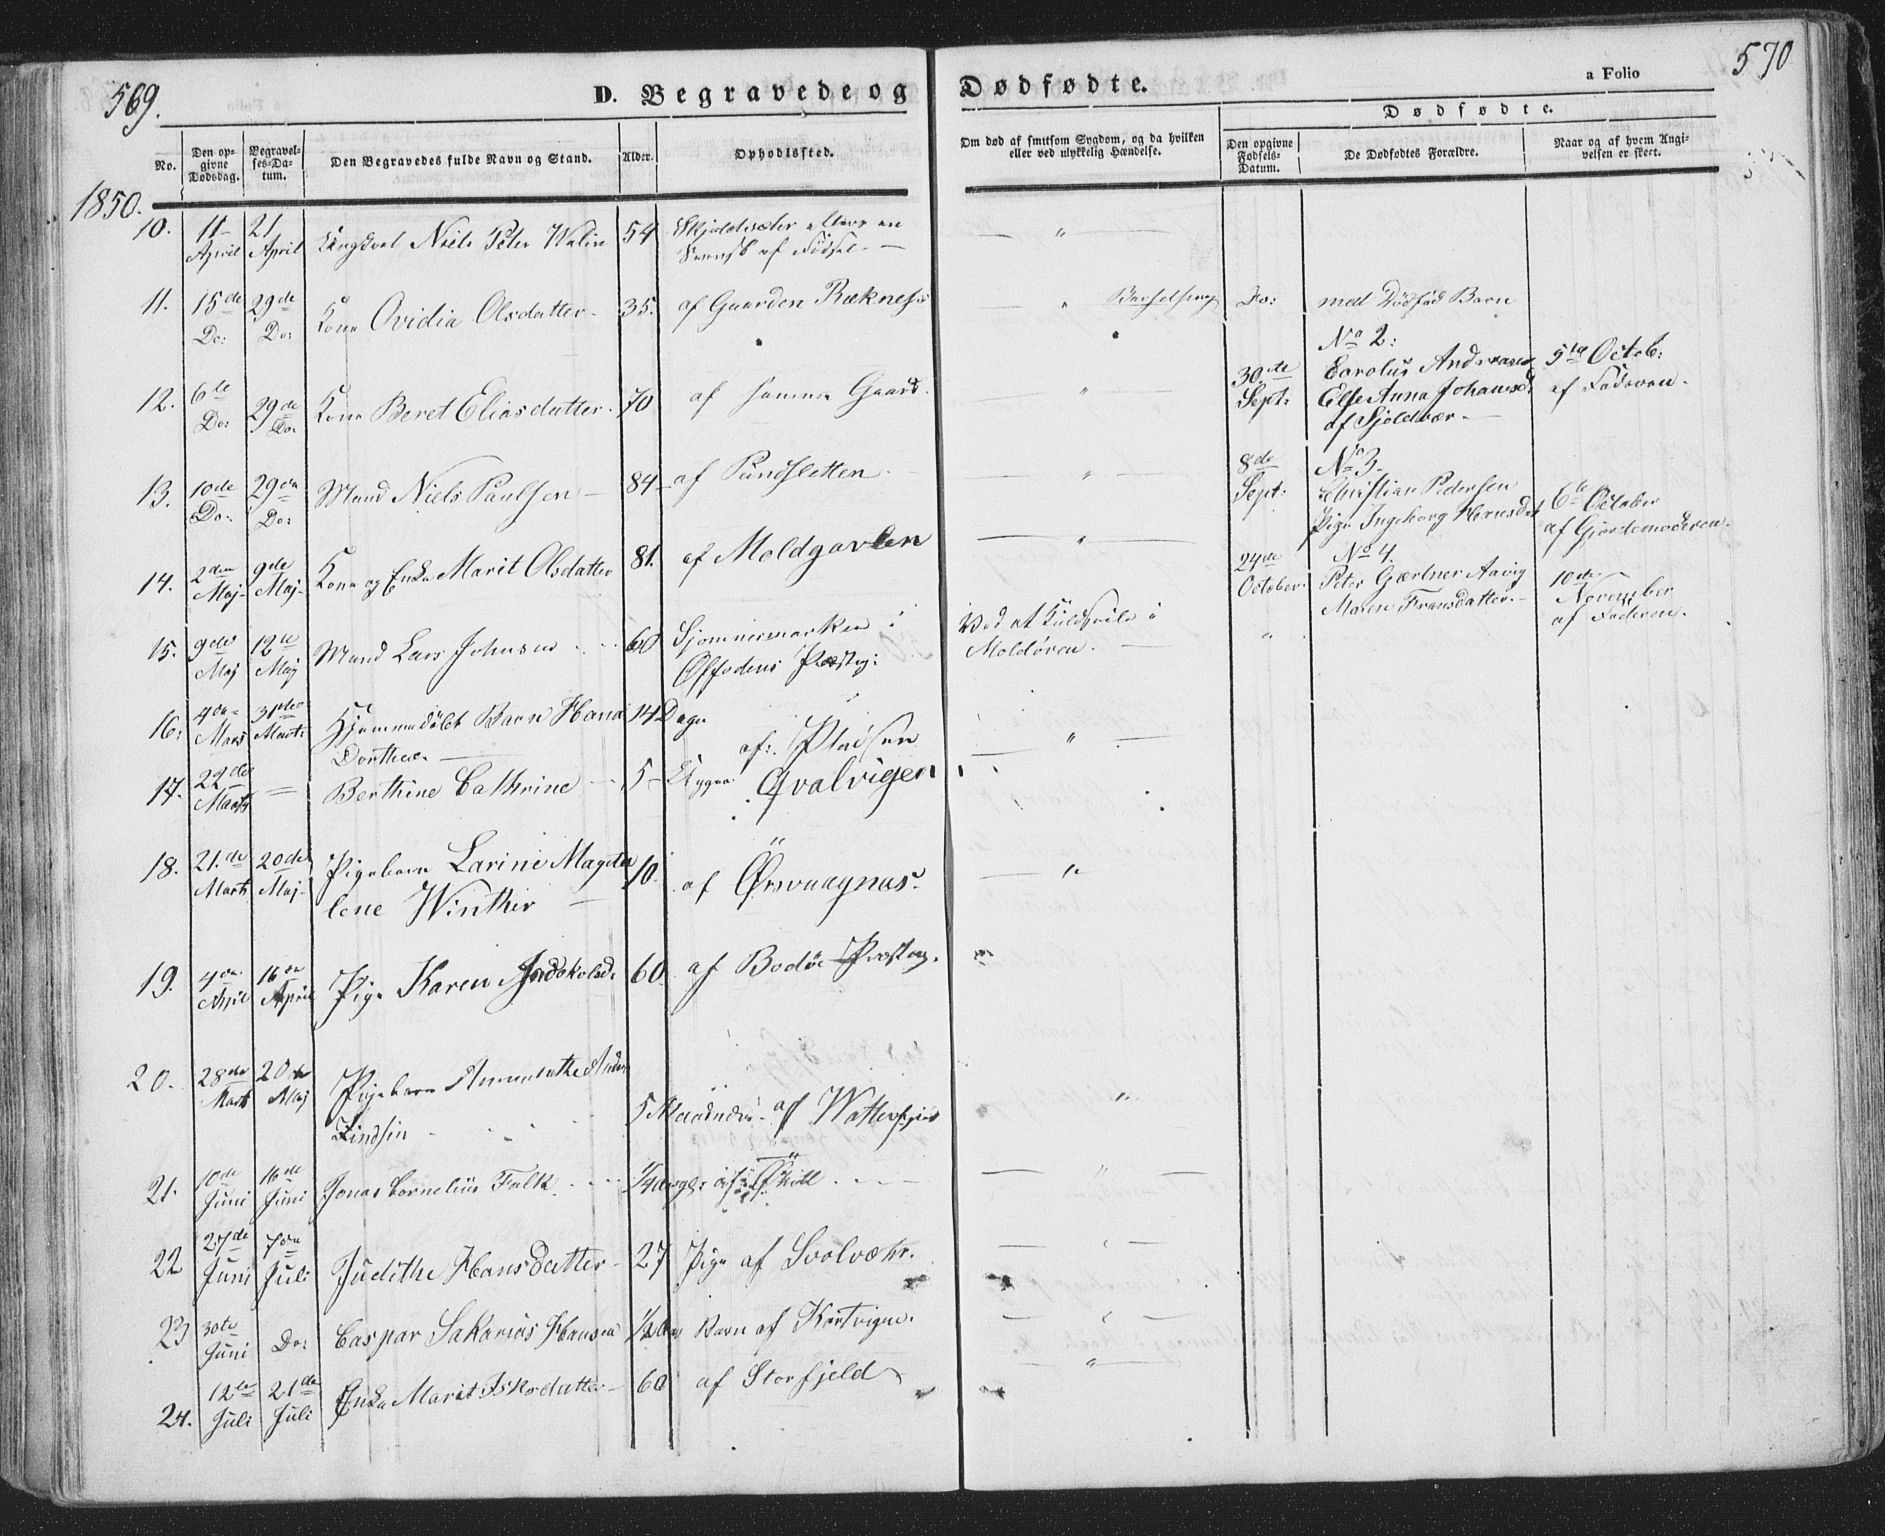 569.
D. Begravede og
No.
Den opgivne Dødsdag.
Begravelses-Datum.
Den Begravedes fulde Navn og Stand.
Alder.
Opholdssted.
1850.
10. 11 April 21 April Niels Peter Walin 54
af Fødsel.
11. 15de Do: 29de Do: Kone Ovidia Olsdatter 35. af Gaarden Reknes
12. 6te Do: 29de Do: Kone Beret Eliasdatter. 70 af samme Gaard.
13. 10de Do: 29de Do: Mand Niels Paulsen 84 af Pundsletten
14. 2den Maj 9de Maj Kone og Enke Marit Olsdatter 81. af Moldgavlen
15. 9de Maj 12te Maj Mand Lars Johnsen 60 Sjomnesmarken i
Offodens Præstegj:
16. 4de Mars 31te Marts Hjemmedøbt Barn Hana 14 Dage
Dorthea
17. 22de Marts = Berthine Cathrine 5 Uger af: Qvalvigen
18. 21de Marts 20de Maj Pigebarn Larine Magda
lene Winther 10. af Ørsvaagnæs.
19. 4de April 16de April Pige Karen 60 af Bodøe Præsteg.
20. 28de Marts 20de Maj Pigebarn
Lindsin 5 Maaneder af
21. 10de Juni 16de Juni Jonas Cornelius Falk 1/4
22 27de Juni 7de Juli Judithe Hansdatter 27 Pige af Svolvæhr.
23 30te Juni Do: Caspar Sakarias Hansen 1/2 Barn af
24. 12te Juli 21de Juli Enke Marit 60 af Storfjeld
570
Dødfødte.
a Folio
Om død af smitsom Sygdom, og da hvilken eller ved ulykkelig Hændelse.
Dødfødte.
Den opgivne Fødsels-Datum.
De Dødfødtes Forældre.
Naar og af hvem Angivelsen er skeet.
Barselseng Do: med Dødfød Barn
No 2:
30te Sept: Carolus Andreasen 5te Octob:
Else Anna Johansd. af Faderen.
af Sjoldvær.
8de Sept: No 3.
Christian Pedersen 6te October
Pige Ingeborg Hansdat af Gjordemoderen.
24de October. No 4.
Peter Gærtner Aavig 10de November
Maren Fransdatter. af Faderen.
Ved et Kuldseile i
Moldøren.